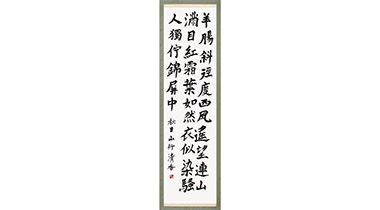 羊腸斜徑度西風遙望連山
滿目紅霜葉如然衣似染騷
人獨佇錦屏中
秋日山行